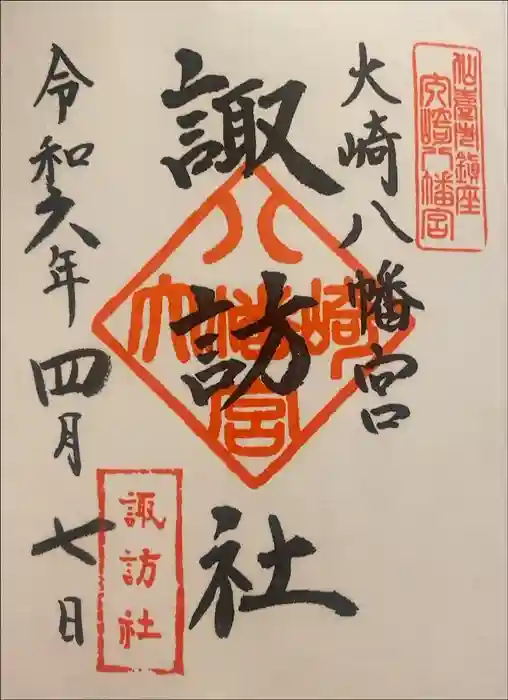 仙臺市鎮座
大崎八幡宮
大崎八幡宮
諏訪社
八幡宮
大崎
諏訪社
令和六年四月七日